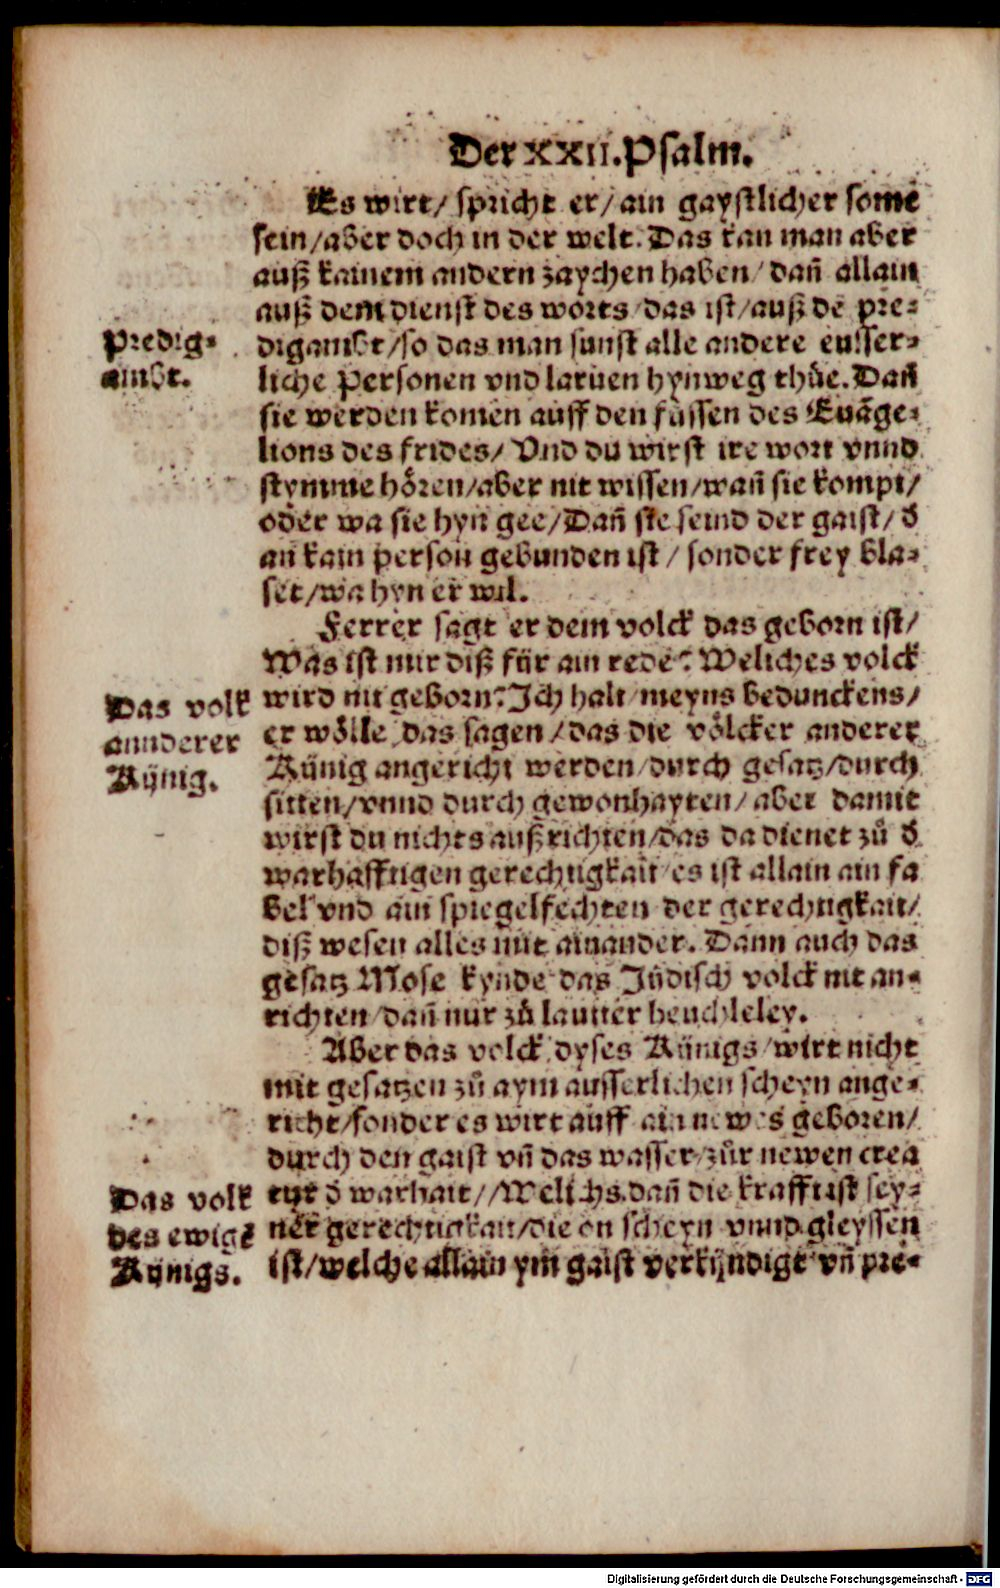 Der XXII. Psalm.
Es wirt/ spricht er/ ain gaystlicher some
sein/aber doch in der welt. Das kan man aber
auß kainem andern zaychen haben/ dañ allain
auß dem dienst des worts/das ist/auß dē pre-
Predig-
ambt.
digambt/so das man sunst alle andere eusser-
liche Personen vnd laruen hynweg thůe. Dañ
sie werden komen auff den füssen des Euāge-
lions des frides/ Vnd du wirst ire wort vnnd
stymme hören/aber nit wissen/wañ sie kompt/
oder wa sie hyn gee/Dañ sie seind der gaist/ d̄
an kain person gebunden ist/ sonder frey bla-
set/wa hyn er wil.
Ferrer sagt er dem volck das geborn ist/
Was ist mir diß für ain rede? Weliches volck
Das volk
annderer
Künig.
wird nit geborn? Ich halt/meyns bedunckens/
er wölle das sagen/das die völcker anderer
Künig angericht werden/durch gesatz/durch
sitten/vnnd durch gewonhayten/ aber damit
wirst du nichts außrichten/das da dienet zů d̄
warhafftigen gerechtigkait/es ist allain ain fa
bel vnd ain spiegelfechten der gerechtigkait/
diß wesen alles mit ainander. Dann auch das
gesatz Mose kynde das Jüdisch volck nit an-
richten/dañ nur zů lautter heuchleley.
Aber das volck dyses Künigs/wirt nicht
mit gesatzen zů aym ausserlichen scheyn ange-
richt/sonder es wirt auff ain newes geboren/
durch den gaist vñ das wasser/zůr newen crea
Das volk
des ewigē
Künigs.
tur d̄ warhait/ /Welichs dañ die krafft ist sey-
ner gerechtigkait/die on scheyn vnnd gleyssen
ist/welche allain ym gaist verkündigt vñ pre-
Digitalisierung gefördert durch die Deutsche Forschungsgemeinschaft - DFG